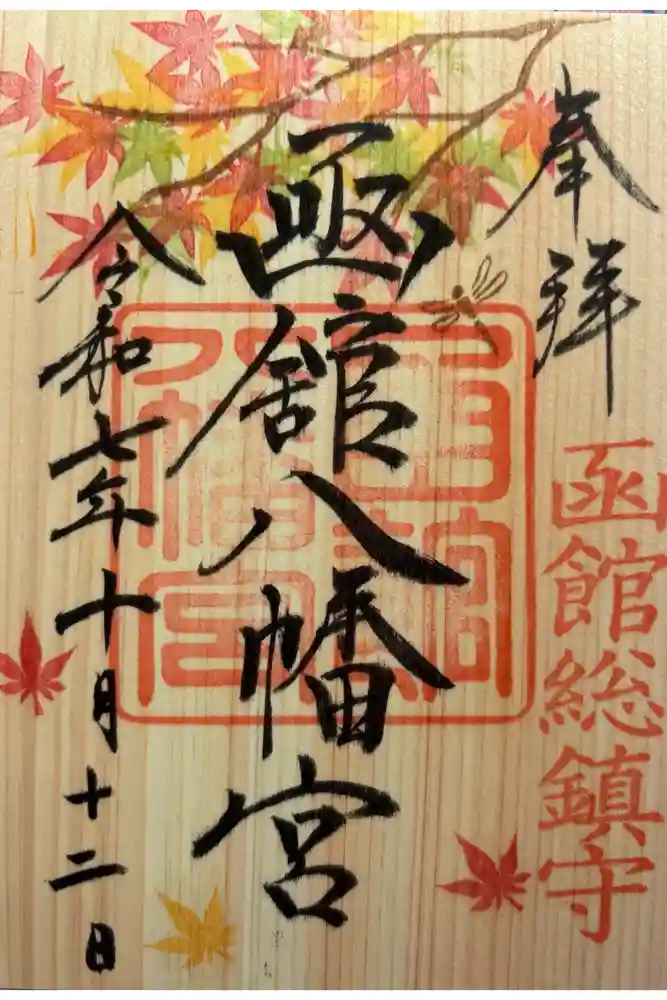 奉拝
函館総鎮守
函館八幡宮
函館八幡宮
令和七年十月十二日